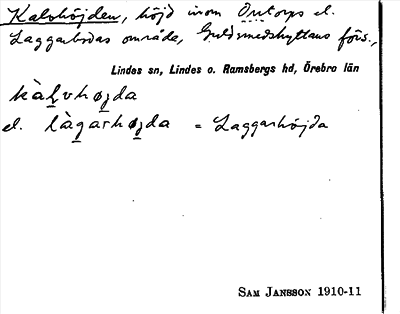 Kalvhöjden, höjd inom Öntorps el.
Laggarbodas område, Guldsmedshyttans förs.,
Lindes sn, Lindes o. Ramsbergs hd, Örebro län
kàḻvhø̱jda
el. là̱ga̱rhø̱jda = Laggarhöjda
SAM JANSSON 1910-11